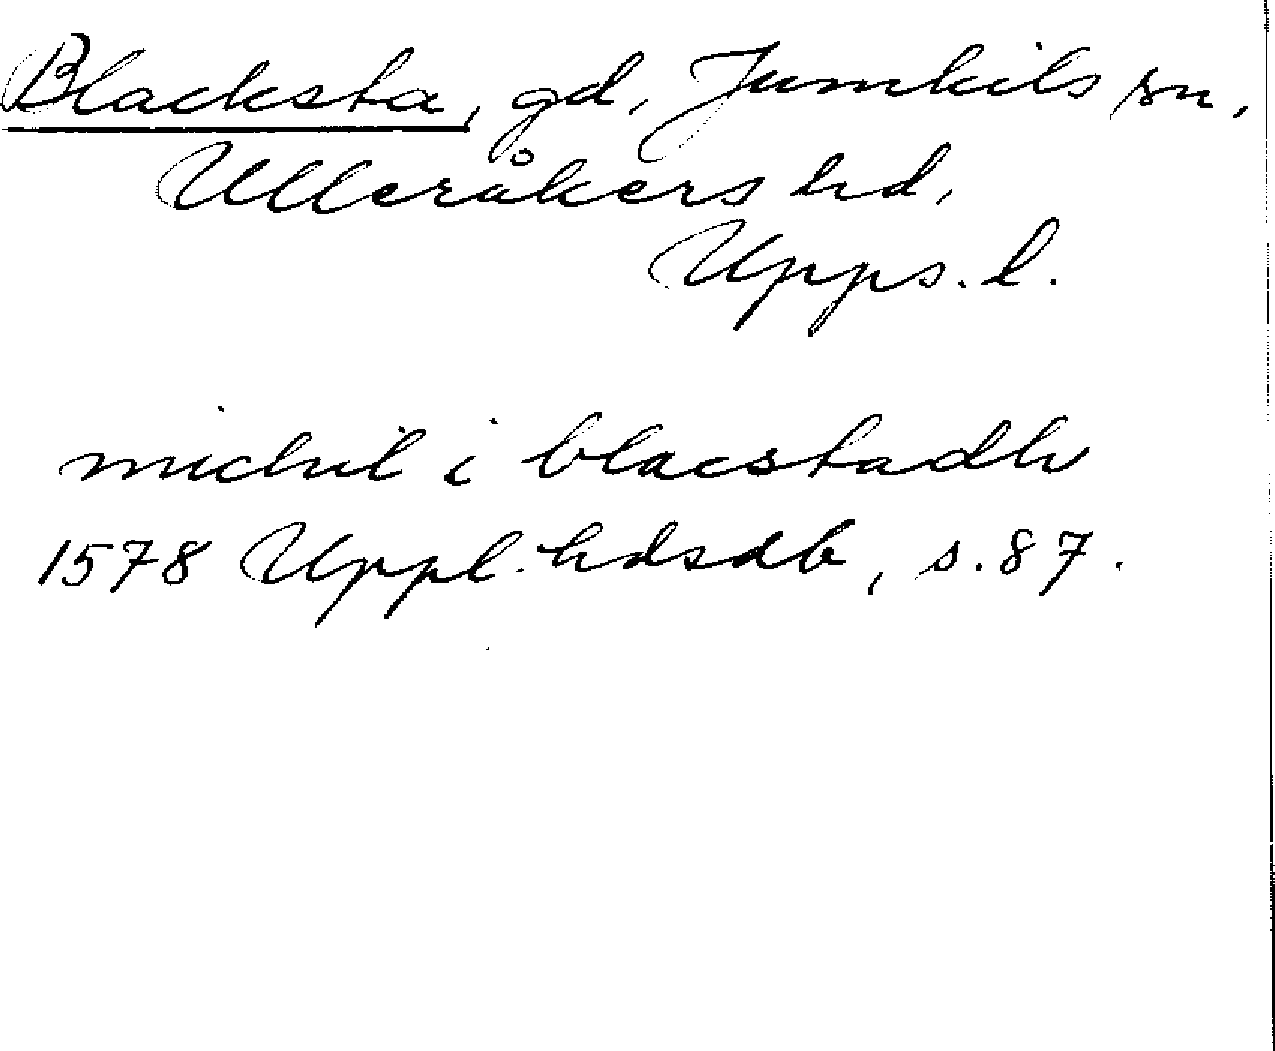 Blacksta, gd, Jumkils sn,
Ulleråkers hd,
Upps. l.
michil i blacstadh
1578 Uppl. hdsdb, s. 87.